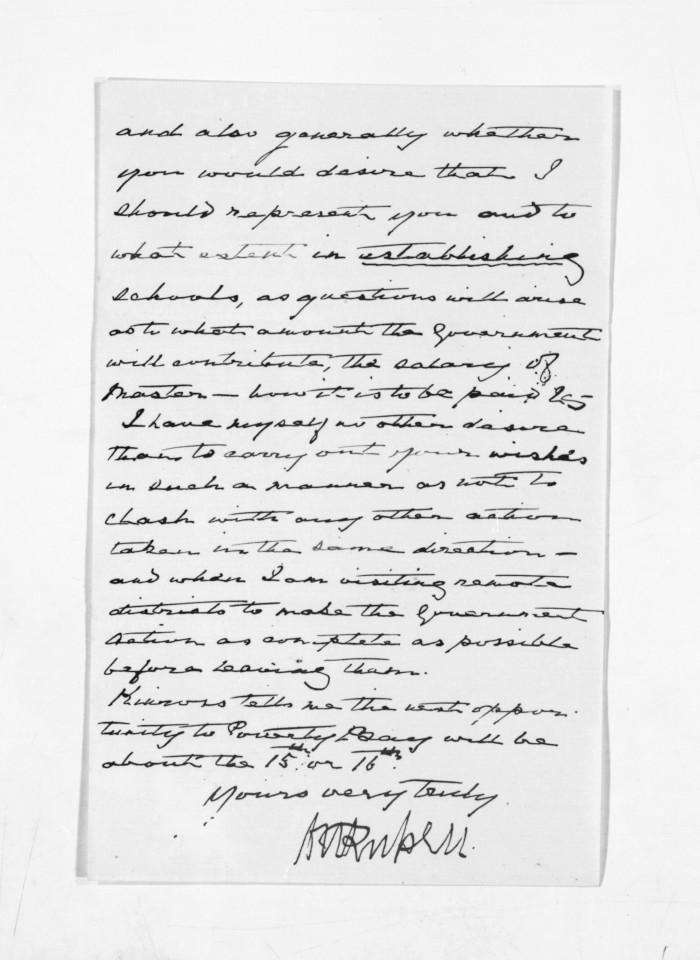 and also generally whether
you would desire that I
should represent you and to
what extent in establishing
schools, as questions will arise
as to what amount the Government
will contribute, the salary of
Master – how it is to be paid &c
I have myself no other desire
than to carry out your wishes
in such a manner as not to
clash with any other action
taken in the same direction –
and when I am visiting remote
districts to make the Government
action as complete as possible
before leaving them.
Kinross tells me the next oppor-
tunity to Poverty Bay will be
about the 15th or 16th.
Yours very truly
Russell